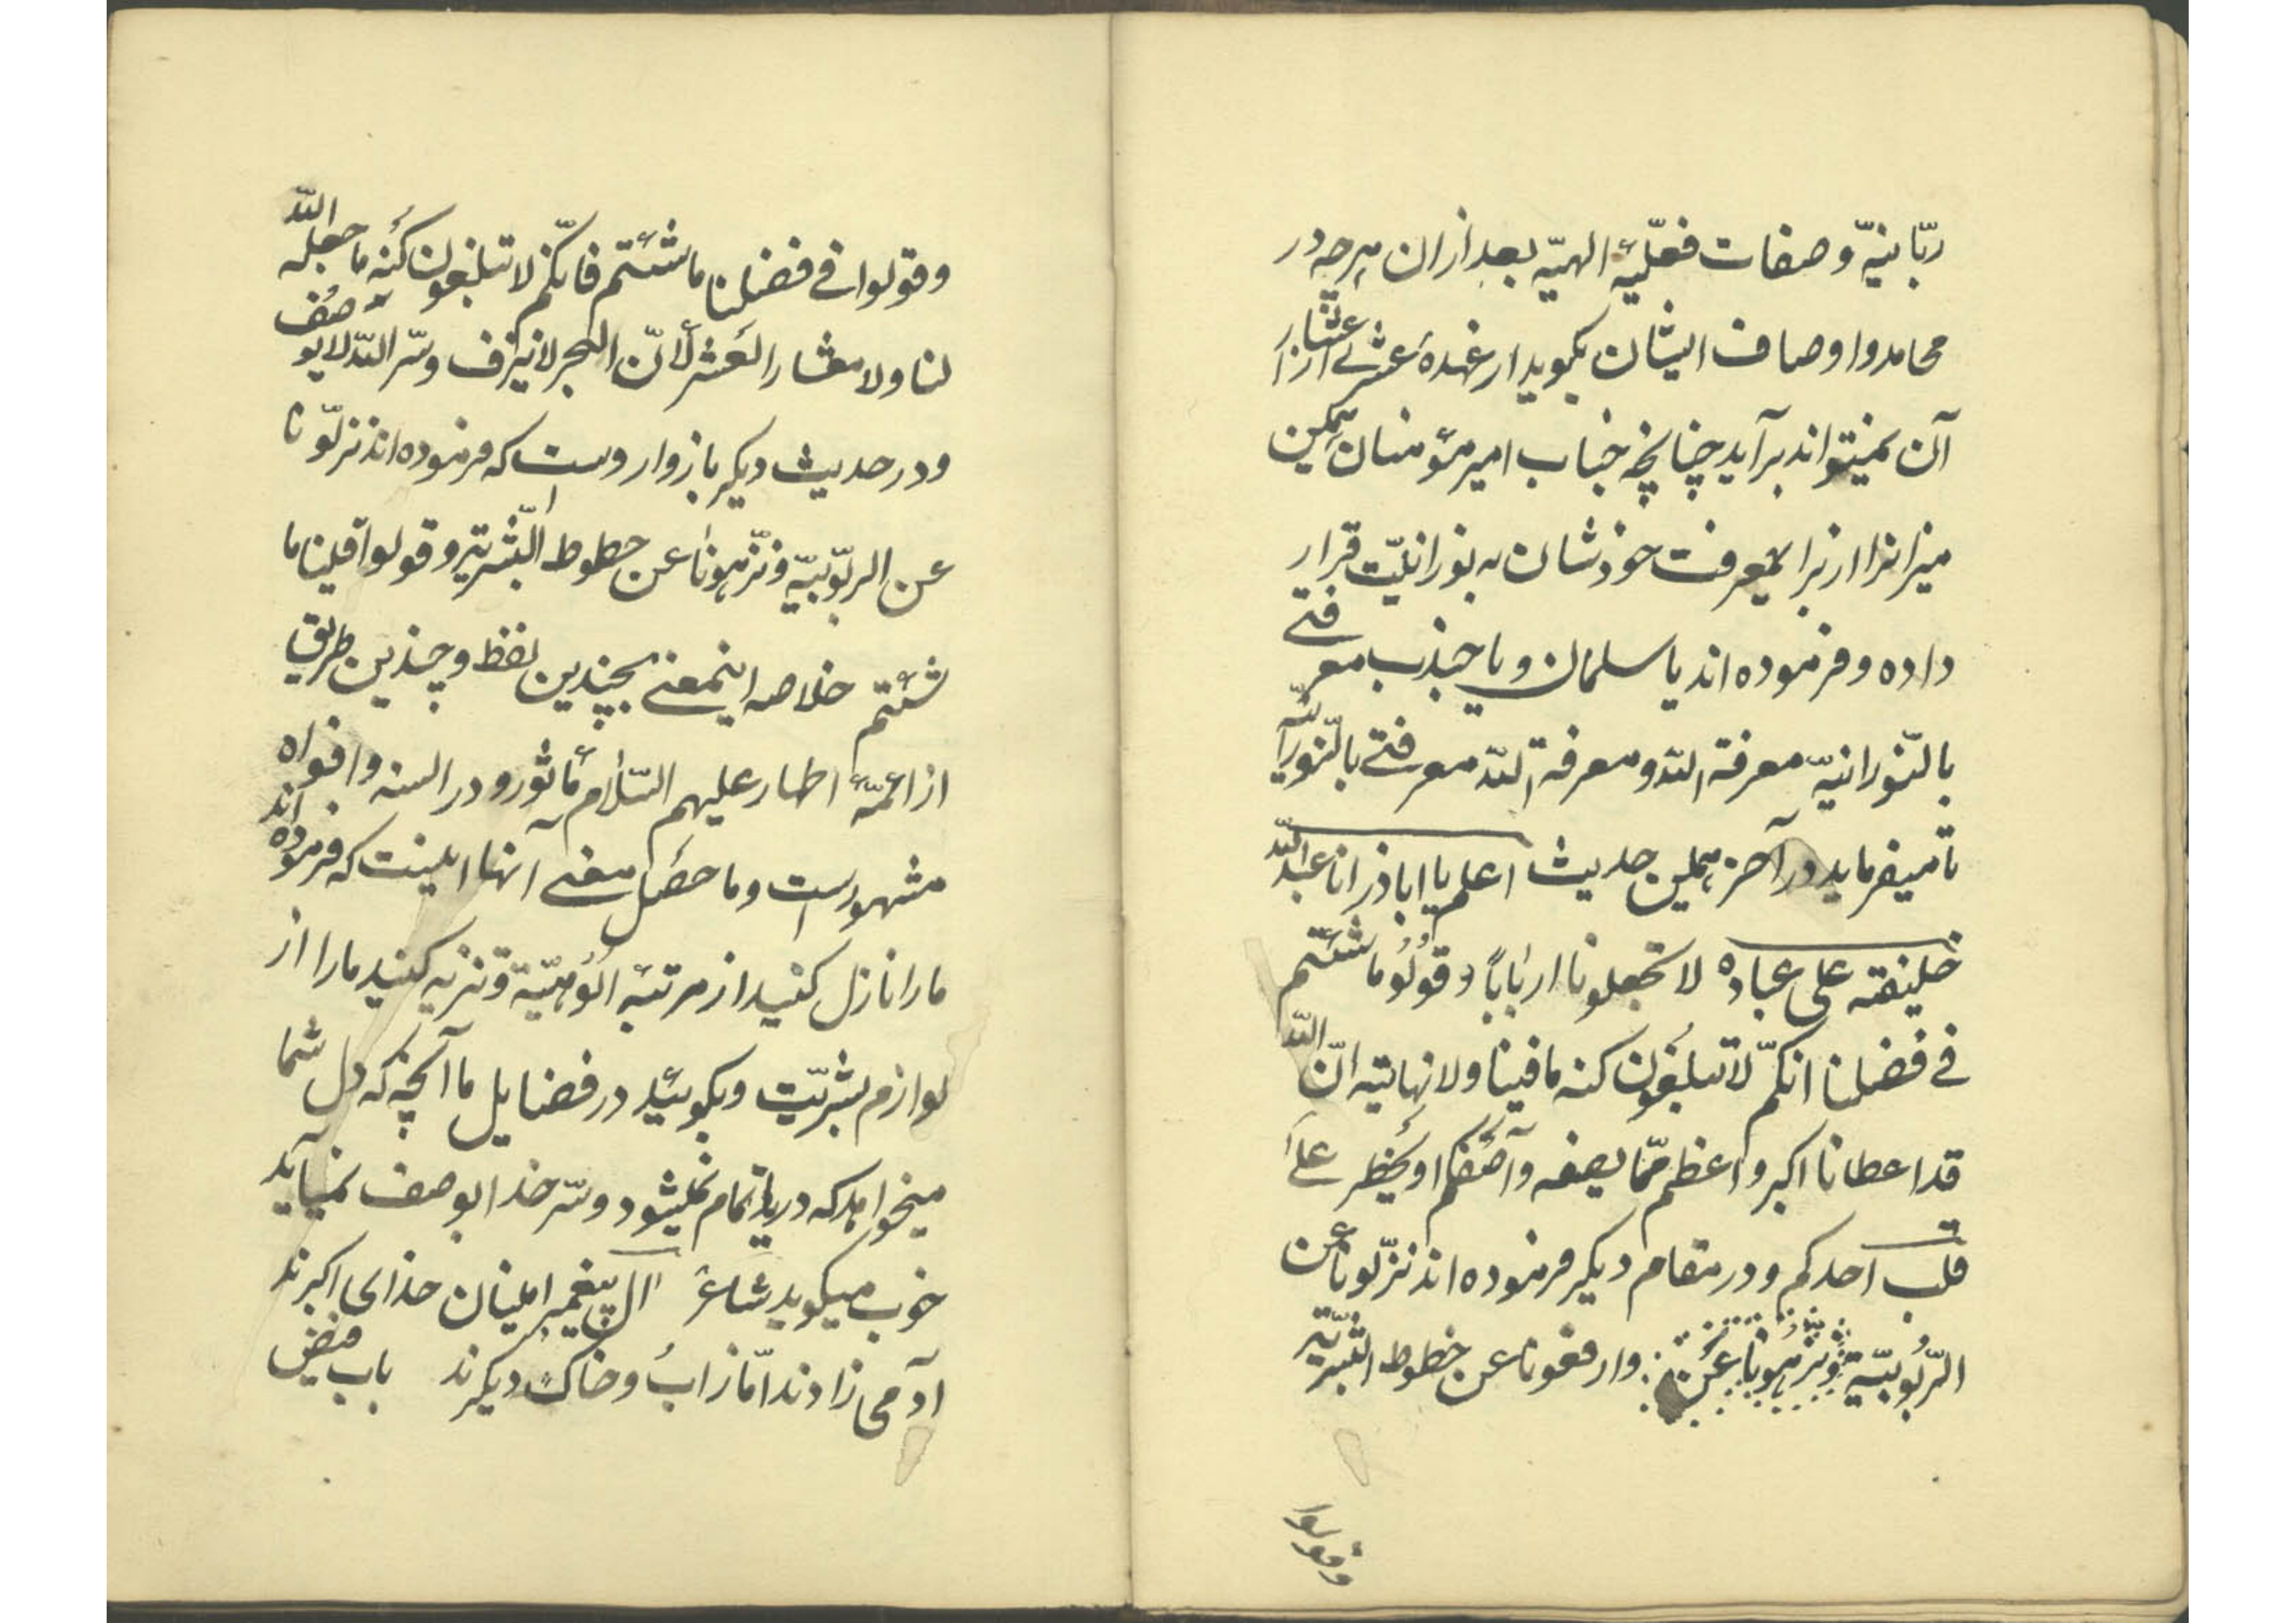 ربّانیّه و صفات فعلیّهٔ الهیّه بعد از ان هرچه در
محامد و اوصاف ایشان بگوید از عهدهٔ عشری از اعشار
آن نمیتواند برآید چنانچه جناب امیر مؤمنان همین
میزانرا از برای معرفت خودشان به نورانیّت قرار
داده و فرموده اند یا سلمان و یا جندب معرفتی
بالنّورانیّه معرفة اللّه و معرفة اللّه معرفتی بالنّورانیّه
تا میفرماید در آخر همین حدیث اعلم یا اباذر انا عبد اللّه
خلیفته علی عباده لا تجعلونا اربابًا و قولو ما شئتم
فی فضلنا انکمّ لا تبلغون کنه ما فینا و لا نهایته انّ اللّه
قد اعطانا اکبر و اعظم ممّا یصفه و آصفکم او یخطر علی
قلب احدکم و در مقام دیگر فرموده اند نزّلونا عن
الرّبوبیّة و نزهونا عن و ارفعونا عن حظوط البشریّة
و قولوا
و قولوا فی فضلنا ما شئتم فانکّم لا تبلغون کنه ما جعله اللّه
لنا و لا معشار العشر لأنّ البحر لا ینزف و سّر اللّه لا یوصف
و در حدیث دیگر باز وارد است که فرموده اند نزلّونا
عن الربّوبیّة و نزّهونا عن حظوط البّشریّة و قولوا فینا ما
شئتم خلاصه اینمعنی بچندین لفظ و چندین طریق
از ائمّهٔ اطهار علیهم السّلام مأثور و در السنه و افواه
مشهور است و ما حصل معنی آنها اینست که فرموده اند
ما را نازل کنید از مرتبهٔ الوهیّة و تنزیه کنید ما را از
لوازم بشریّت و بگوئید در فضایل ما آنچه که دل شما
میخواهد که دریا تمام نمیشود و سّر خدا بوصف نمیآید
خوب میگوید شاعر ال پیغمبر اینان خدای اکبرند
آدمی زادند امّا زاب و خاک دیگرند باب فیض